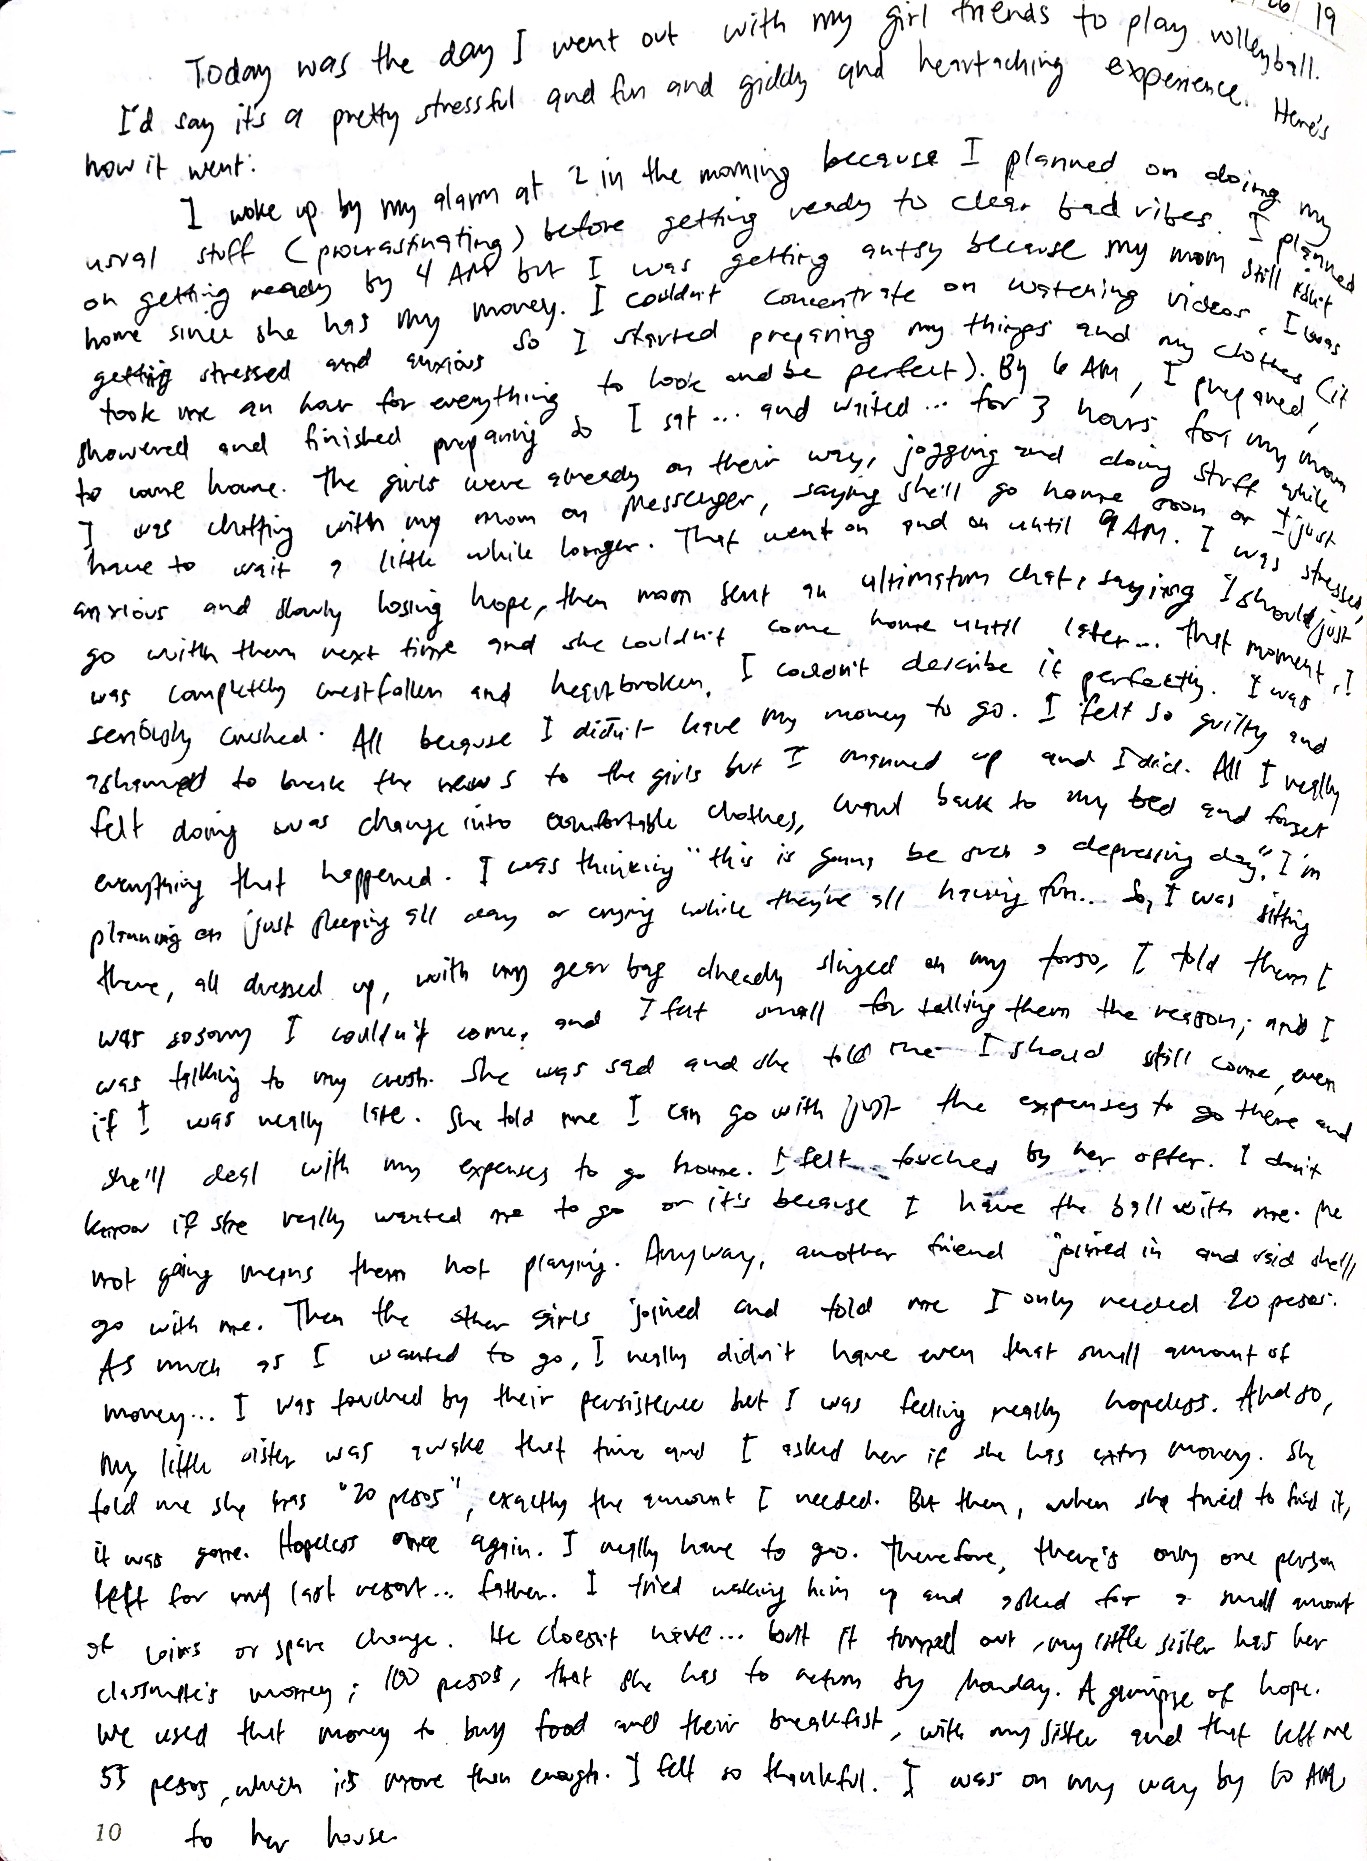 26 19
Today was the day I went out with my girl friends to play volleyball.
I'd say it's a pretty stressful and fun and giddy and heartaching experience. Here's
how it went:
I woke up by my alarm at 2 in the morning because I planned on doing my
usual stuff (procrastinating) before getting ready to clear bad vibes. I planned
on getting ready by 4 AM but I was getting antsy because my mom still isn't
home since she has my money. I couldn't concentrate on watching videos. I was
getting stressed and anxious so I started preparing my things and my clothes (it
took me an hour for everything to look and be perfect). By 6 AM, I prepared,
showered and finished preparing so I sat... and waited... for 3 hours for my mom
to come home. The girls were already on their way, jogging and doing stuff while
I was chatting with my mom on Messenger, saying she'll go home soon or I just
have to wait a little while longer. That went on and on until 9 AM. I was stressed,
anxious and slowly losing hope, then mom sent an ultimatum chat, saying I should just
go with them next time and she couldn't come home until later... That moment, I
was completely crestfallen and heartbroken. I couldn't describe it perfectly. I was
seriously crushed. All because I didn't have my money to go. I felt so guilty and
ashamed to break the news to the girls but I manned up and I did. All I really
felt doing was change into comfortable clothes, crawl back to my bed and forget
everything that happened. I was thinking "this is gonna be such a depressing day". I'm
planning on just sleeping all day or crying while they're all having fun.. So, I was sitting
there, all dressed up, with my gear bag already slinged on my torso, I told them I
was so sorry I couldn't come, and I felt small for telling them the reason; and I
was talking to my crush. She was sad and she told me I should still come, even
if I was really late. She told me I can go with just the expenses to go there and
she'll deal with my expenses to go home. I felt touched by her offer. I don't
know if she really wanted me to go or it's because I have the ball with me. Me
not going means them not playing. Anyway, another friend joined in and said she'll
go with me. Then the other girls joined and told me I only needed 20 pesos.
As much as I wanted to go, I really didn't have even that small amount of
money... I was touched by their persistence but I was feeling really hopeless. And so,
my little sister was awake that time and I asked her if she has extra money. She
told me she has "20 pesos", exactly the amount I needed. But then, when she tried to find it,
it was gone. Hopeless once again. I really have to go. Therefore, there's only one person
left for my last resort... father. I tried waking him up and asked for a small amount
of coins or spare change. He doesn't have... but it turned out, my little sister has her
classmate's money; 100 pesos, that she has to return by Monday. A glimpse of hope.
We used that money to buy food and their breakfast, with my sister and that left me
55 pesos, which is more than enough. I felt so thankful. I was on my way by 10 AM
to her house.
10